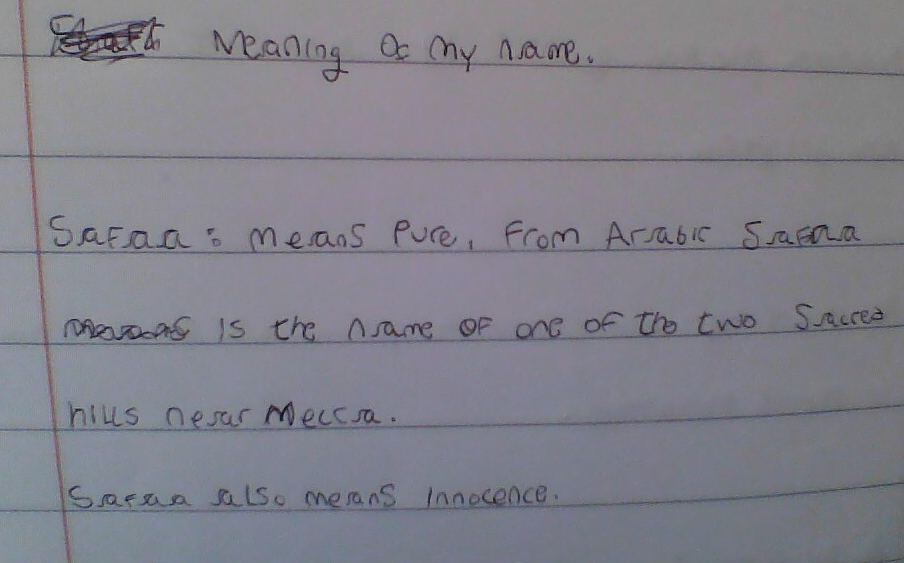 Meaning of my name.
Safaa : means Pure, From Arabic Safaa
is the name of one of the two Sacred
hills near Mecca.
Safaa also means innocence.